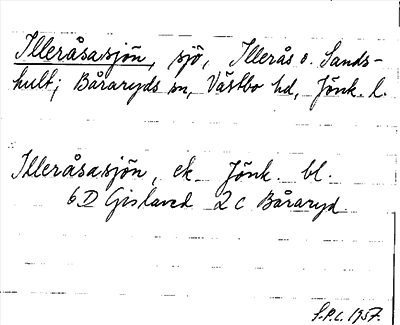 Illeråsasjön, sjö, Illerås o. Sands-
hult; Båraryds sn, Västbo hd, Jönk. l.
Illeråsasjön, ek. Jönk. bl.
6D Gislaved 2c Båraryd
S.P.L. 1957.